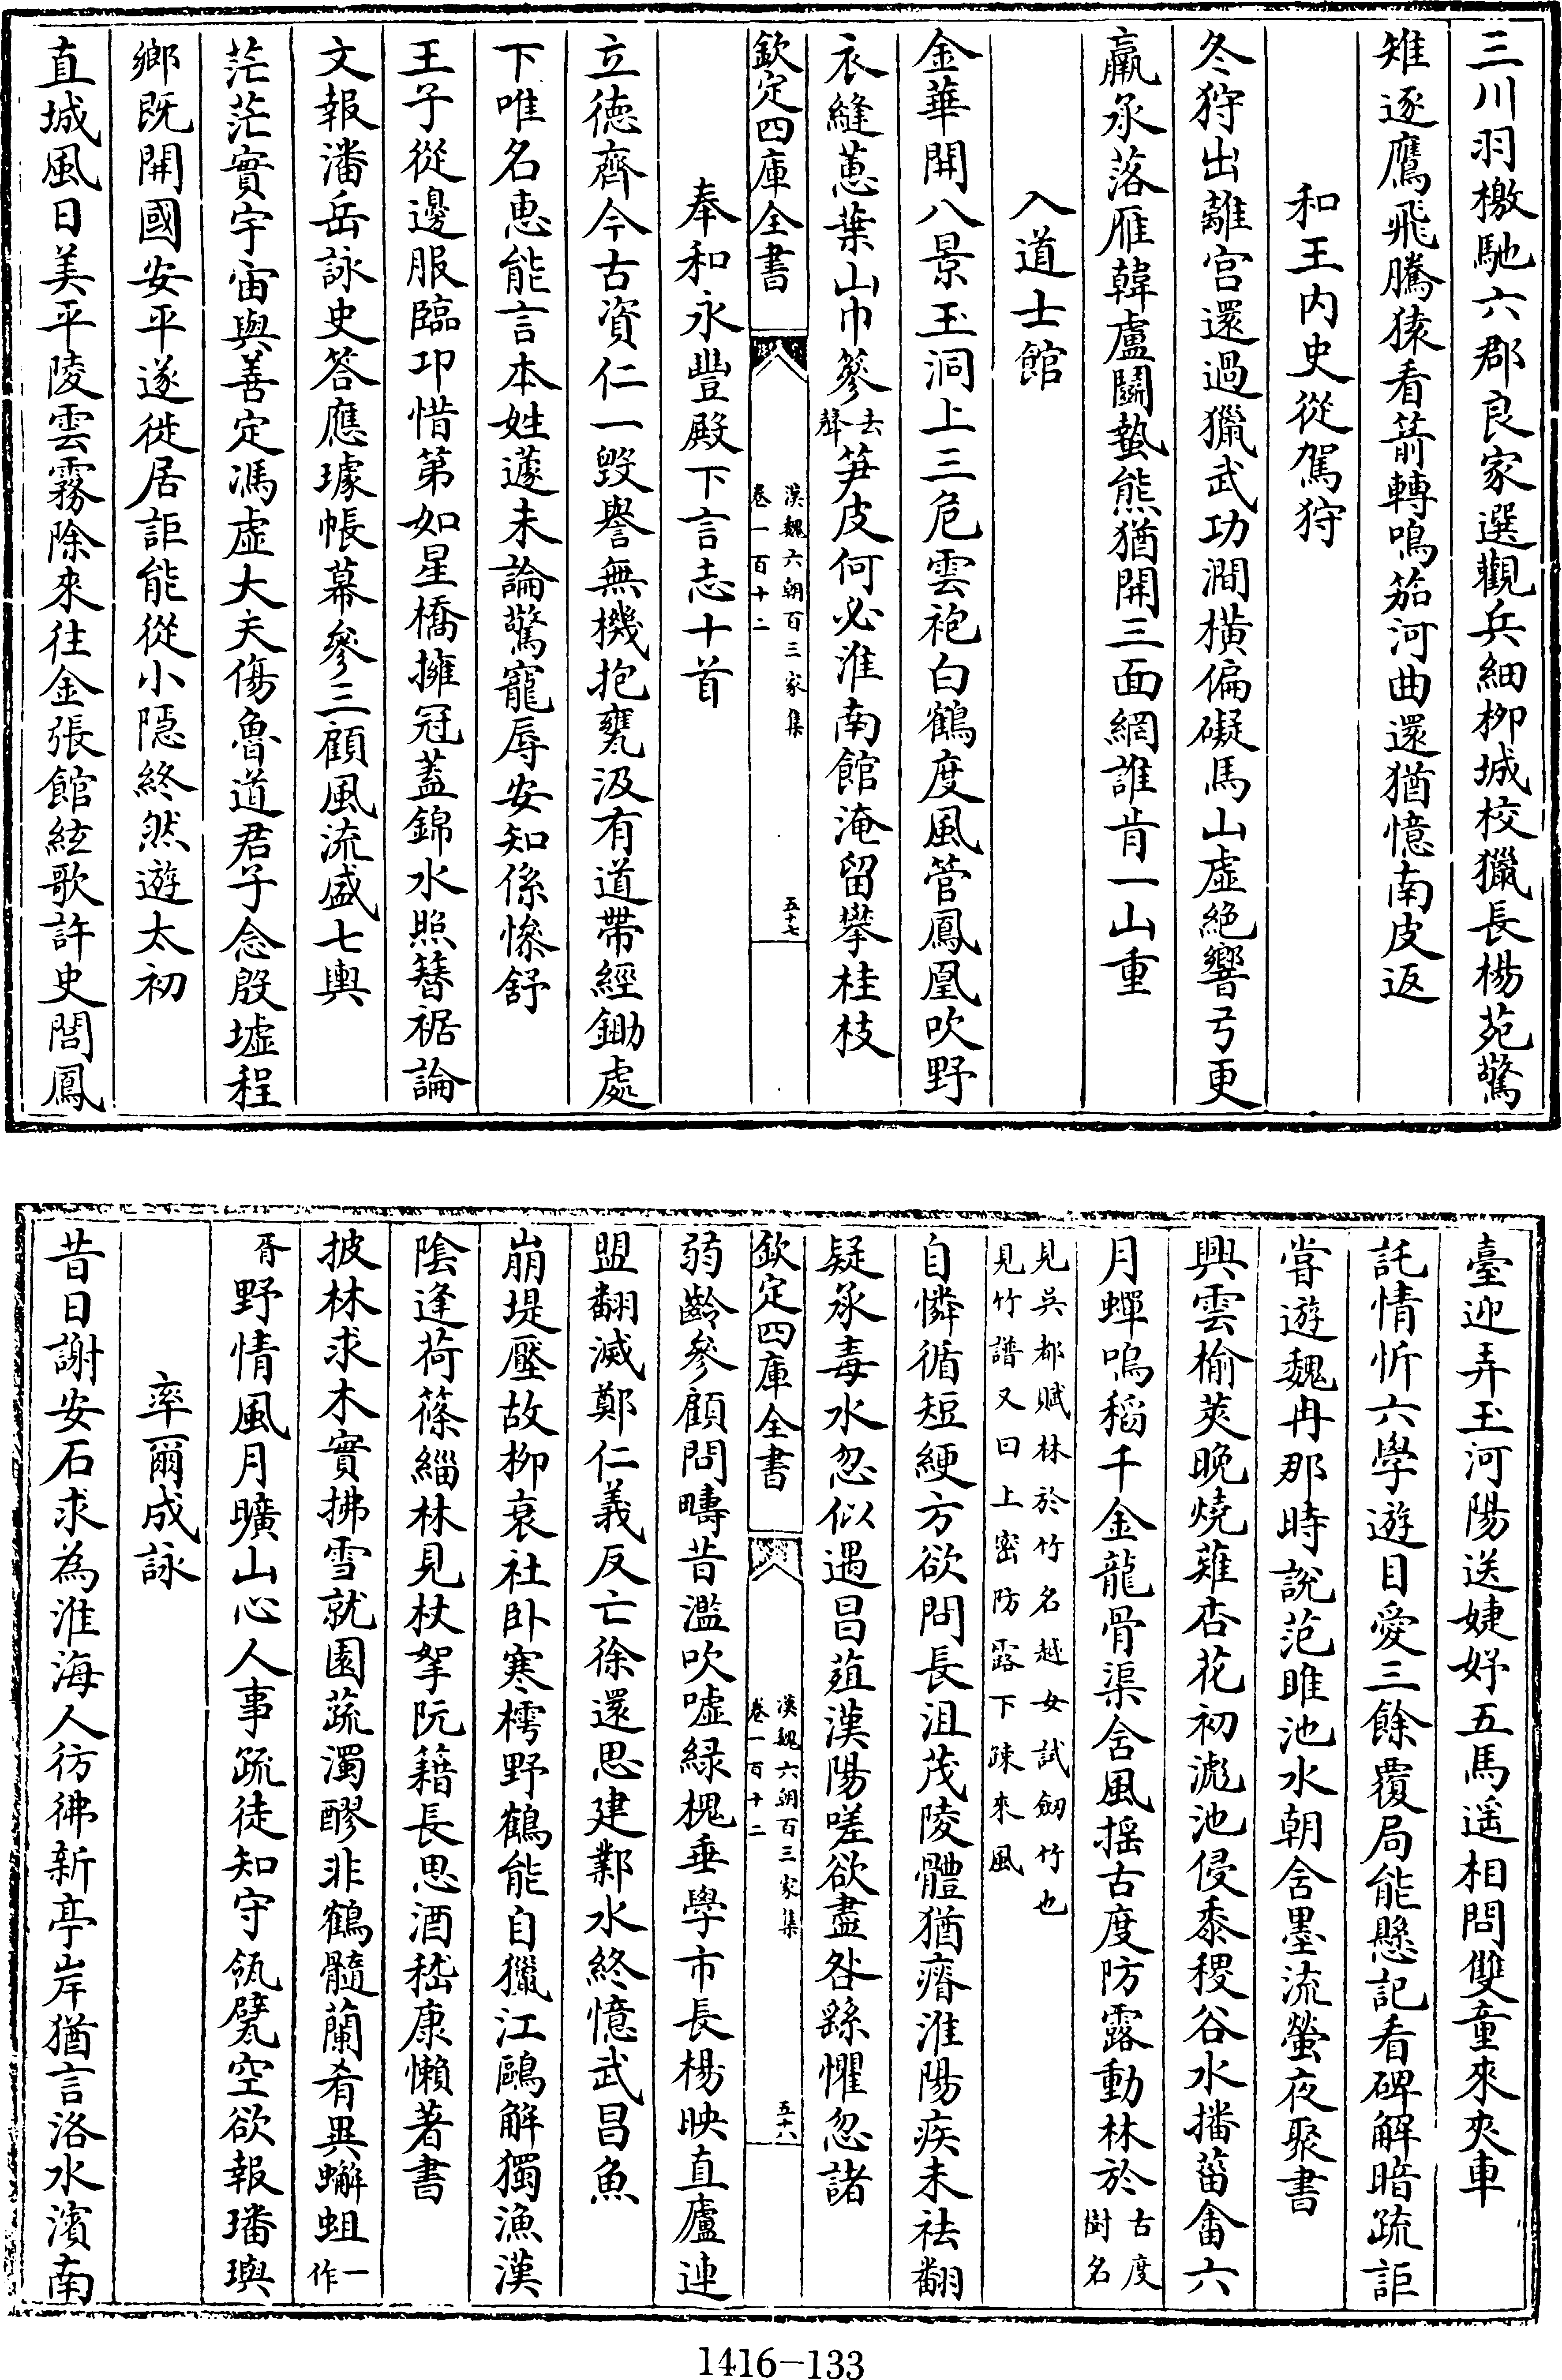 三川羽檄馳六郡良家選觀兵細柳城校獵長楊苑驚
雉逐鷹飛騰猿看箭轉鳴笳河曲還猶憶南皮返
和王内史從駕狩
冬狩出離宫還過獵武功澗橫偏礙馬山虚絶響弓更
羸承落雁韓盧鬭蟄熊猶開三面網誰肯一山重
入道士館
金華開八景玉洞上三危雲袍白鶴度風管鳳凰吹野
衣縫蕙葉山巾篸去聲笋皮何必淮南館淹留攀桂枝
欽定四庫全書
漢魏六朝百三家集
卷一百十二
五十七
奉和永豐殿下言志十首
立德齊今古資仁一毁譽無機抱甕汲有道帶經鋤處
下唯名惠能言本姓蘧未論驚寵辱安知係慘舒
王子從邊服臨卭惜第如星橋擁冠蓋錦水照簪裾論
文報潘岳詠史答應璩帳幕參三顧風流盛七輿
茫茫實宇宙與善定馮虚大夫傷魯道君子念殷墟程
鄉既開國安平遂徙居詎能從小隠終然遊太初
直城風日美平陵雲霧除來往金張館絃歌許史閭鳳
臺迎弄玉河陽送婕妤五馬遥相問雙童來夾車
託情忻六學遊目愛三餘覆局能懸記看碑解暗疏詎
嘗遊魏冉那時說范雎池水朝含墨流螢夜聚書
興雲榆莢晚燒薙杏花初滮池侵黍稷谷水播菑畬六
月蟬鳴稻千金龍骨渠含風摇古度防露動林於古度樹名
見吳都賦林於竹名越女試劒竹也
見竹譜又曰上密防露下疎來風
自憐循短綆方欲問長沮茂陵體猶瘠淮陽疾未祛翻
疑承毒水忽似遇昌葅漢陽嗟欲盡咎繇懼忽諸
欽定四庫全書
漢魏六朝百三家集
卷一百十二
五十六
弱齡參顧問疇昔濫吹嘘緑槐垂學市長楊映直廬連
盟翻滅鄭仁義反亡徐還思建鄴水終憶武昌魚
崩堤壓故柳衰社卧寒樗野鶴能自獵江鷗解獨漁漢
陰逢荷篠緇林見杖挐阮籍長思酒嵇康懶著書
披林求木實拂雪就園蔬濁醪非鶴髓蘭肴異蠏蛆一作
胥野情風月曠山心人事疏徒知守瓴甓空欲報璠璵
率爾成詠
昔日謝安石求為淮海人彷彿新亭岸猶言洛水濱南
1416-133